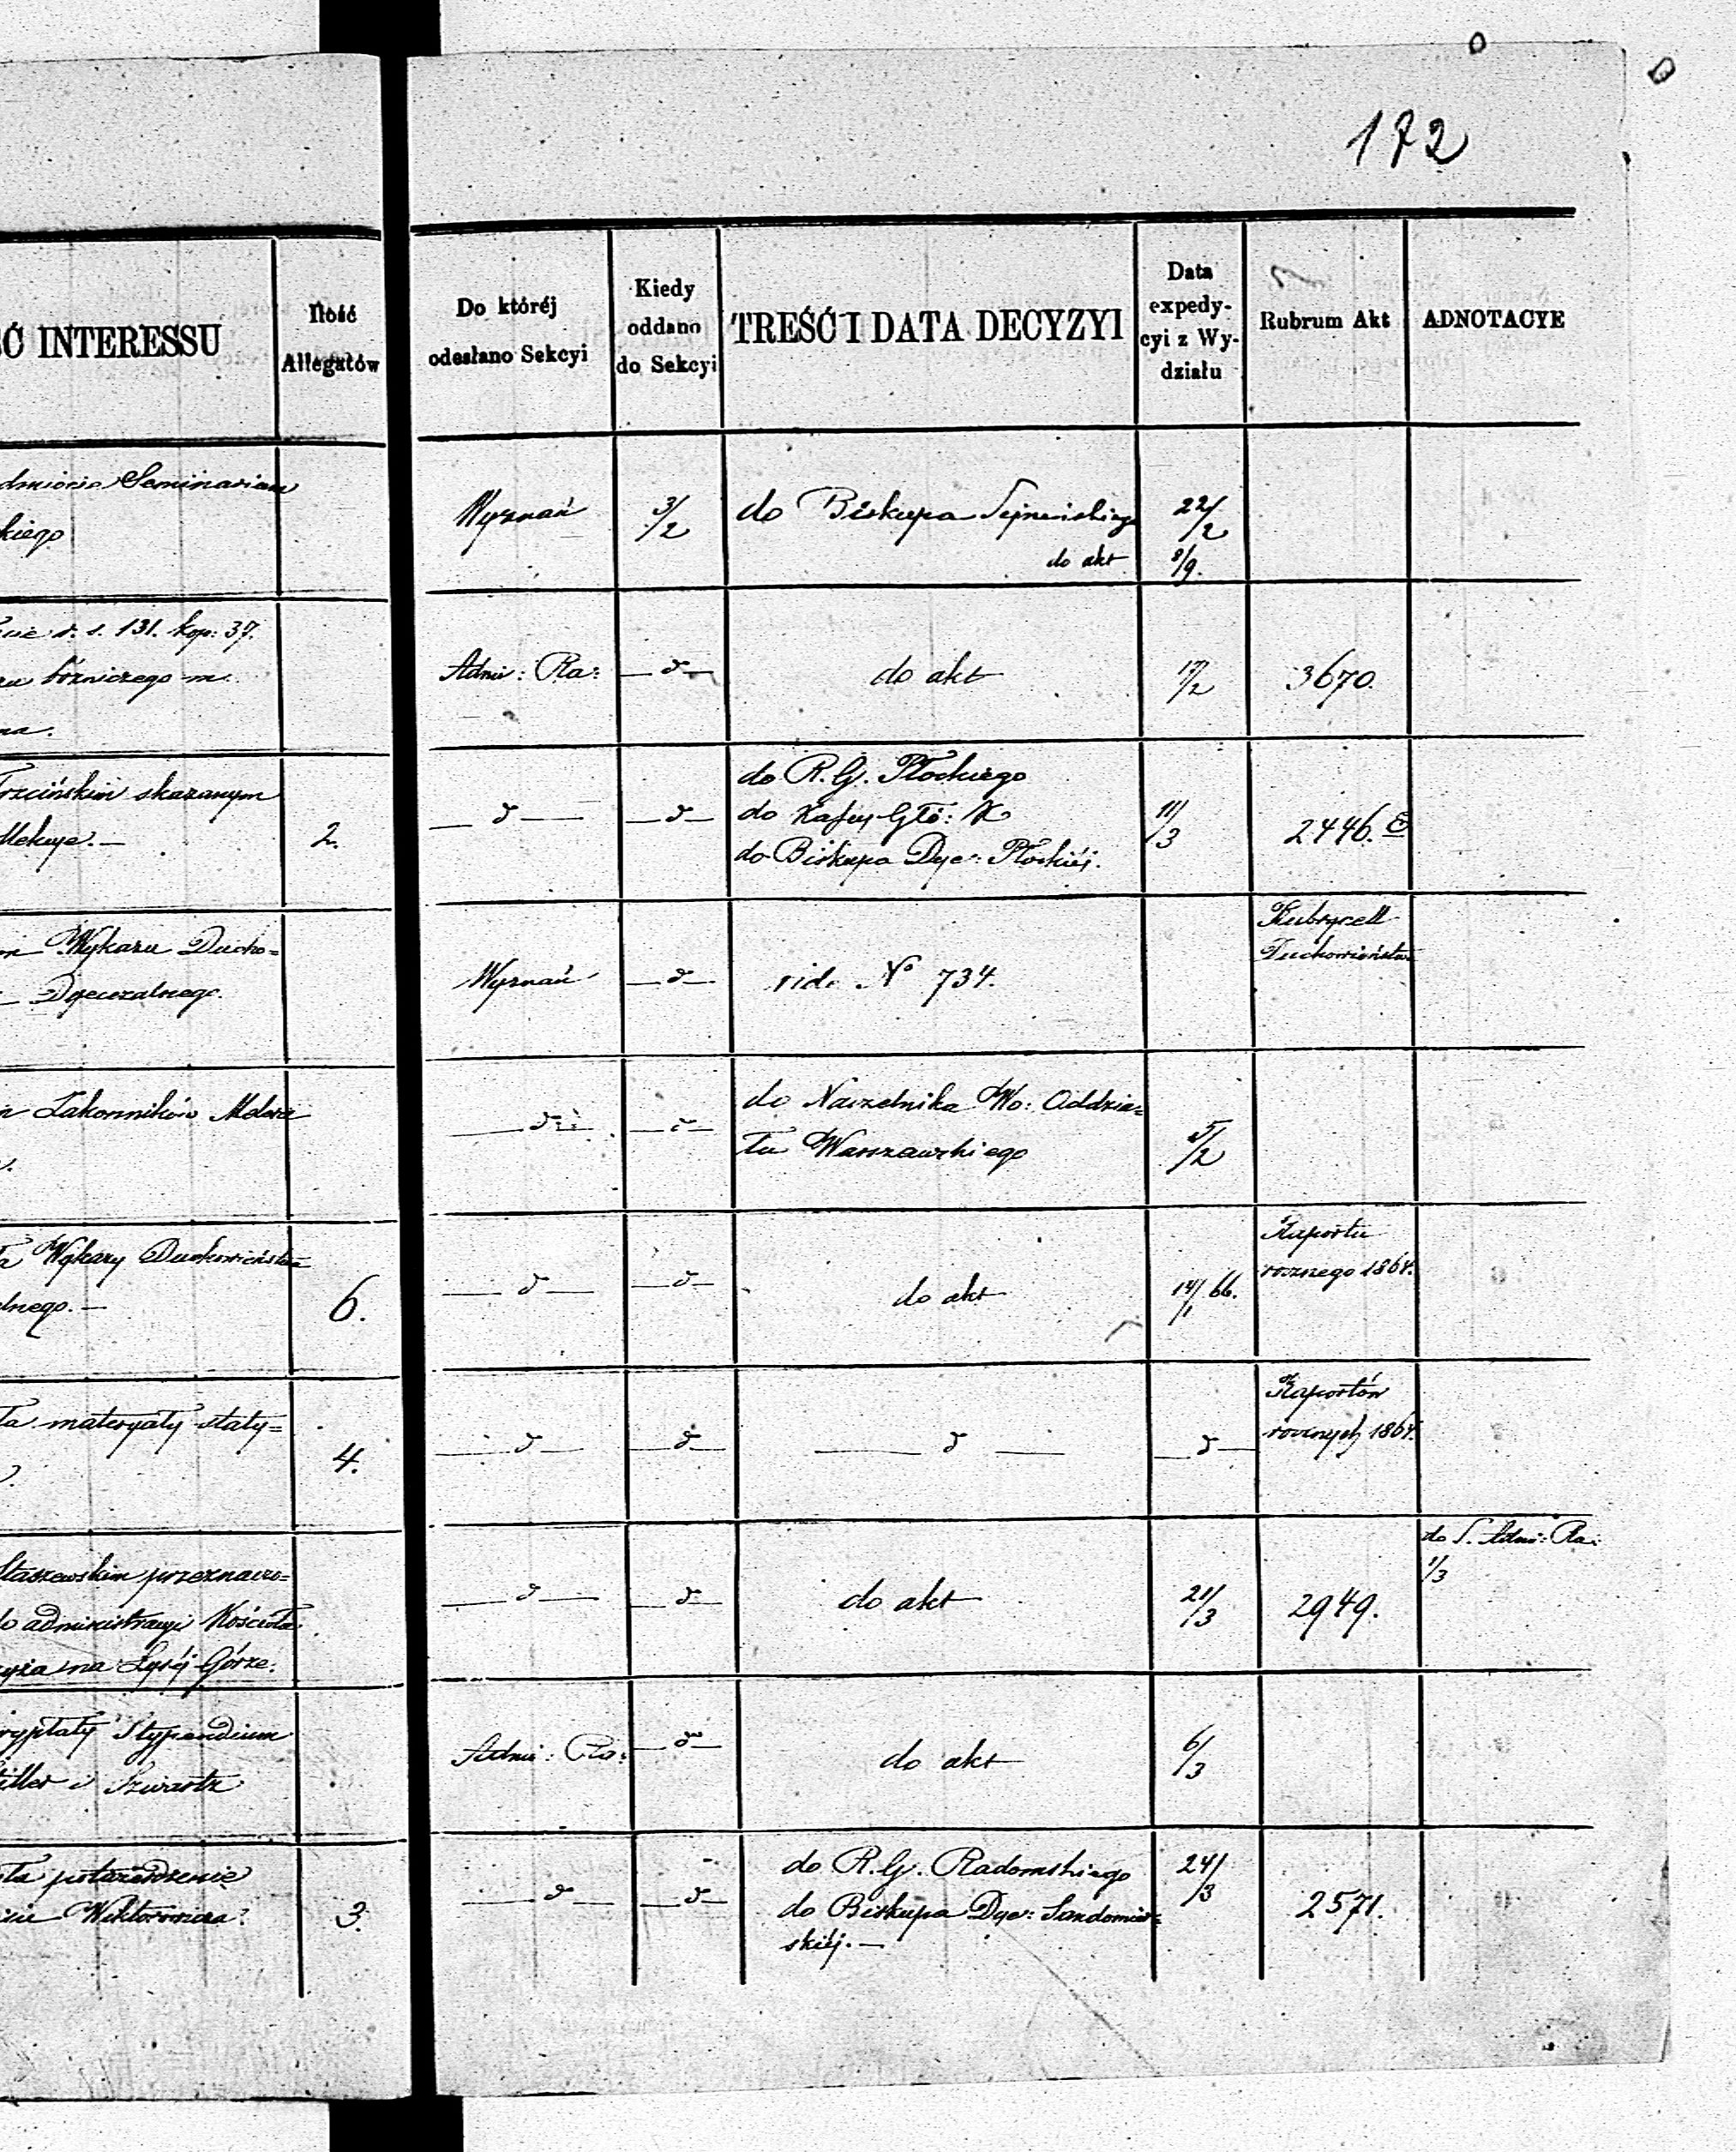 172
Ć INTERESSU
Ilość
Allegatów
Do któréj
odesłano Sekcyi
Kiedy
oddano
do Sekcyi
TREŚĆ I DATA DECYZYI
Data
expedy-
cyi z Wy-
działu
Rubrum Akt
ADNOTACYE
Seminarium
kiego
Wyznań
3/2
do Biskupa Sejneńskiego
22/2
do akt
8/9.
131. kop: 37.
bóżniczego m.
na.
Admi: Ra:
— d —
do akt
17/2
3670.
Trzcińskim skazanym
2.
— d —
— d —
do R. G. Płockiego
do Kassy Głó: K
do Biskupa Dye: Płockiéj.
11/3
2446.
Wykazu Ducho=
Dyecezalnego.
Wyznań
— d —
vide No 734.
Rubrycell
Duchowieństwa
Zakonników
— d —
— d —
do Naczelnika Wo: Oddzia=
łu Warszawskiego
5/2
ła Wykazy Duchowieństwa
alnego. —
6.
— d —
— d —
do akt
14/1 66.
Raportu
rocznego 1864.
ła materyały staty=
4.
— d —
— d —
— d —
— d —
Raportów
rocznych 1864.
Staszewskim przeznaczo=
do administracyi Kościoła
na Łyséj Górze.
— d —
— d —
do akt
21/3
2949.
do S. Admi: Ra:
1/3
wypłaty Stypendium
i Szwartz
Admi: Ra:
— d —
do akt
6/3
ła potwierdzenie
Wiktorowicza.
3.
— d —
— d —
do R. G. Radomskiego
do Biskupa Dye: Sandomier=
skiéj. —
24/3
2571.